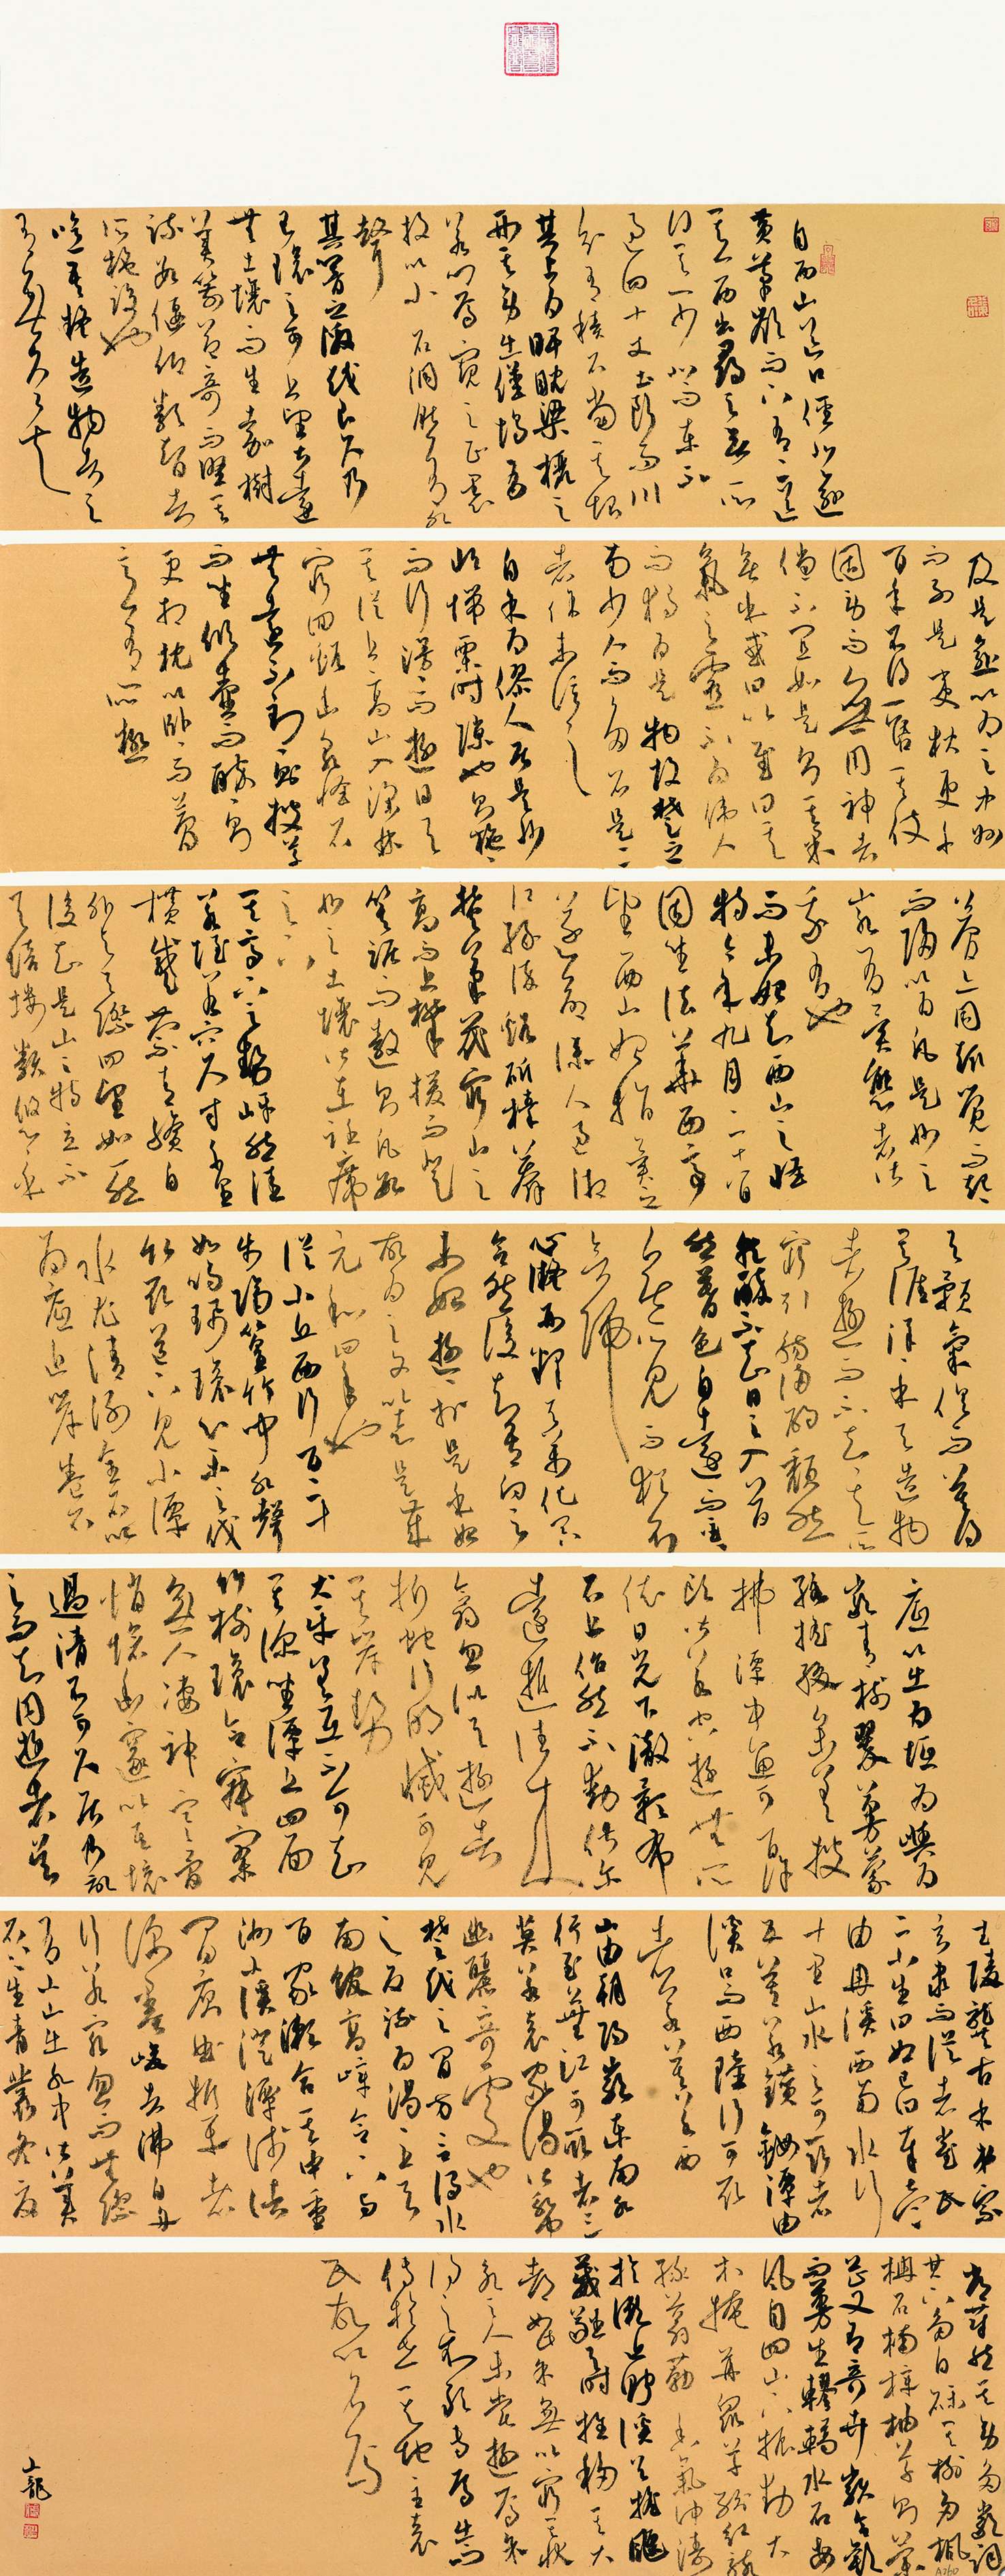 自西山道口徑北逾
黃茅嶺而下有二道
其一西出尋之無所
得其一少北而東不
過四十丈土斷而川
分有積石當其垠
其上為睥睨梁欐之
形其旁出堡塢有
若門焉窺之正黑
投以小石洞然有水
聲
其響之激越良久乃
已環之可上望甚遠
無土壤而生嘉樹
美箭益奇而堅其
疏數偃仰類智者
所施設也
噫吾疑造物者之
有無久矣
及是愈以為之中州
而列是夷狄更千
百年不得一售其伎
固勞而無用神者
儻不宜如是則其果
無乎或曰以曰其
氣之靈不為偉人
而獨為是物故楚之
南少人而多石是二
者余未信之
自余為僇人居是州
恆惴栗時隙也則施施
而行漫而遊日與
其徒上高山入深林
窮迴谿幽泉怪石
無遠不到到則披草
而坐傾壺而醉則
更相枕以臥而夢
意有所極
夢亦同趣覺而起
而歸以為凡是州之
山有異態者皆
我有也
而未始知西山之怪
特今年九月二十八日
因坐法華西亭
望西山始指異之
遂命僕人過湘
江緣谿斫榛莽
焚茅茷窮山之
高而止攀援而登
箕踞而遨則凡數
州之土壤皆在衽席
之下
其高下之勢岈然洼
若垤若穴尺寸千里
蹙縈青繚白
外與天際四望如一然
後知是山之特立不
與培塿類悠悠乎
與顥氣俱而莫得
其涯洋洋乎與造物
者遊而不知其所
窮引觴滿酌頹然
就醉不知日之入蒼
然暮色自遠而至
至無所見而猶不
欲歸
心凝形釋與萬化冥
合然後知吾向之
未始遊遊於是乎始
故為之文以志是歲
元和四年也
從小丘西行百二十
步隔篁竹聞水聲
如鳴珮環心樂之伐
竹取道下見小潭
水尤清冽全石以
為底近岸卷石
底以出為坻為嶼為
巖青樹翠蔓蒙
絡搖綴參差披
拂潭中魚可百許
頭皆若空遊無所
依日光下澈影布
石上佁然不動俶爾
遠逝往來
翕忽似與遊者
折蛇行明滅可見
其岸勢
犬牙差互不可知
其源坐潭上四面
竹樹環合寂寥
無人淒神寒骨
悄愴幽邃以其境
過清不可久居乃記
之而去同遊者吳
武陵龔古余弟宗
玄隸而從者崔氏
二小生曰恕己曰奉壹
由冉溪西南水行
十里山水之可取者
五莫若鈷鉧潭由
溪口而西陸行可取
者八九莫若西
山由朝陽巖東南水
行至蕪江可取者三
莫若袁家渴皆永中
幽麗奇處也
楚越之間方言謂水
之反流為渴上與
南館高嶂合下與
百家瀨合其中重
洲小溪澄潭淺渚
間廁曲折平者
深墨峻者沸白舟
行若窮忽而無際
有小山出水中皆美
石上生青叢冬夏
常蔚然其旁多巖洞
其下多白礫其樹多楓
柟石楠樟柚草則蘭
芷又有奇卉類合歡
而蔓生轇轕水石每
風自四山而下振動大
木掩苒眾草紛紅駭
綠蓊葧香氣沖濤
旋瀨退貯溪谷搖颺
葳蕤與時推移其大
都如此余無以窮其狀
永之人未嘗遊焉余
得之不敢專焉出而
傳於世其地主袁
氏故以名焉